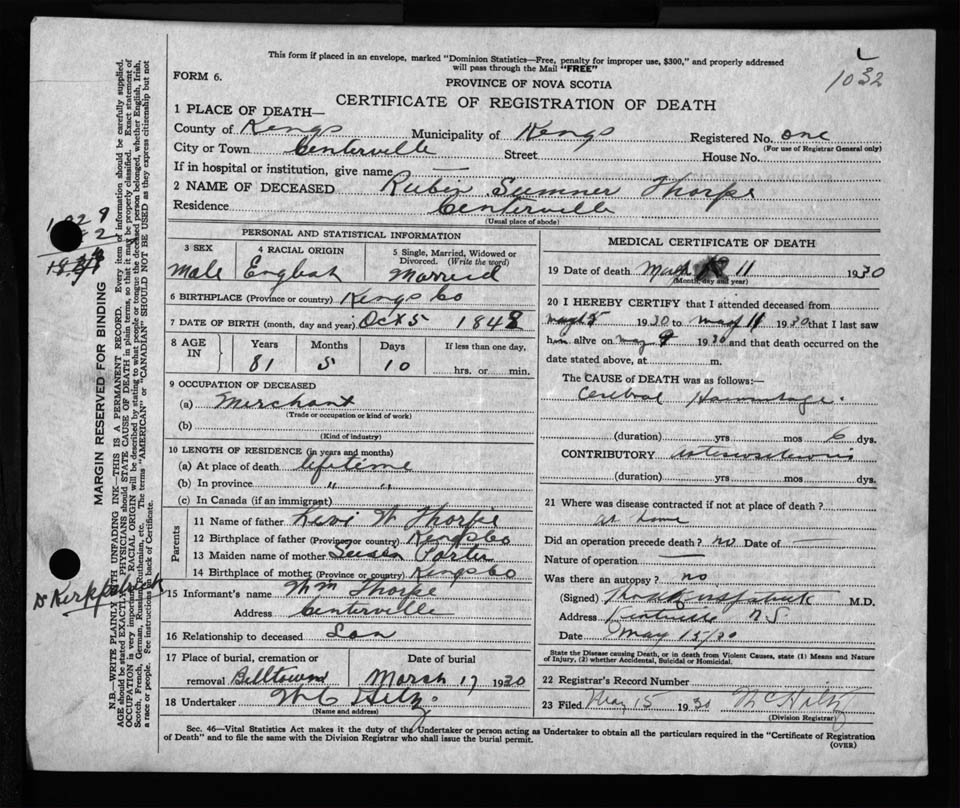 This form if placed in an envelope, marked "Dominion Statistics—Free, penalty for improper use, $300," and properly addressed
will pass through the Mail "FREE"
L
1032
FORM 6.
PROVINCE OF NOVA SCOTIA
CERTIFICATE OF REGISTRATION OF DEATH
1 PLACE OF DEATH—
County of Kings Municipality of Kings Registered No. one
(For use of Registrar General only)
City or Town Centerville Street House No.
If in hospital or institution, give name
2 NAME OF DECEASED Rubin Sumner Thorpe
Residence Centerville
(Usual place of abode)
PERSONAL AND STATISTICAL INFORMATION
3 SEX 4 RACIAL ORIGIN 5 Single, Married, Widowed or Divorced. (Write the word)
Male English Married
6 BIRTHPLACE (Province or country) Kings Co
7 DATE OF BIRTH (month, day and year) Oct 5 1848
8 AGE IN Years Months Days If less than one day,
81 5 10 hrs. or min.
9 OCCUPATION OF DECEASED
(a) Merchant
(Trade or occupation or kind of work)
(b)
(Kind of industry)
10 LENGTH OF RESIDENCE (in years and months)
(a) At place of death lifetime
(b) In province " "
(c) In Canada (if an immigrant)
Parents
11 Name of father Levi W Thorpe
12 Birthplace of father (Province or country) Kings Co
13 Maiden name of mother Susan Porter
14 Birthplace of mother (Province or country) Kings Co
15 Informant's name Wm Thorpe
Address Centerville
16 Relationship to deceased Son
17 Place of burial, cremation or Date of burial
removal Billtown March 17 1930
18 Undertaker W C Hiltz
(Name and address)
MEDICAL CERTIFICATE OF DEATH
19 Date of death 11 1930
(Month, day and year)
20 I HEREBY CERTIFY that I attended deceased from
1930 to 11 1930 that I last saw
him alive on 9 1930 and that death occurred on the
date stated above, at m.
The CAUSE of DEATH was as follows:—
Cerebral Haemorrhage.
(duration) yrs mos 6 dys.
CONTRIBUTORY
(duration) yrs mos dys.
21 Where was disease contracted if not at place of death?
at home
Did an operation precede death? no Date of —
Nature of operation —
Was there an autopsy? no
(Signed) Kirkpatrick M.D.
Address Kentville NS
Date May 15/30
State the Disease causing Death, or in death from Violent Causes, state (1) Means and
Nature of Injury, (2) whether Accidental, Suicidal or Homicidal.
22 Registrar's Record Number
23 Filed May 15 1930 W C Hiltz
(Division Registrar)
Sec. 46—Vital Statistics Act makes it the duty of the Undertaker or person acting as Undertaker to obtain all the particulars required in the "Certificate of Registration
of Death" and to file the same with the Division Registrar who shall issue the burial permit.
(OVER)
MARGIN RESERVED FOR BINDING
N.B.—WRITE PLAINLY WITH UNFADING INK—THIS IS A PERMANENT RECORD. Every item of information should be carefully supplied.
AGE should be stated EXACTLY. PHYSICIANS should STATE CAUSE OF DEATH in plain terms, so that it may be properly classified. Exact statement of
OCCUPATION is very important. RACIAL ORIGIN will be described by stating to what people or tongue the deceased person belonged, whether English, Irish,
Scotch, French, German, Russian, Ruthenian, etc. The terms "AMERICAN" or "CANADIAN" SHOULD NOT BE USED as they express citizenship but not
a race or people. See instructions on back of Certificate.
Dr Kirkpatrick